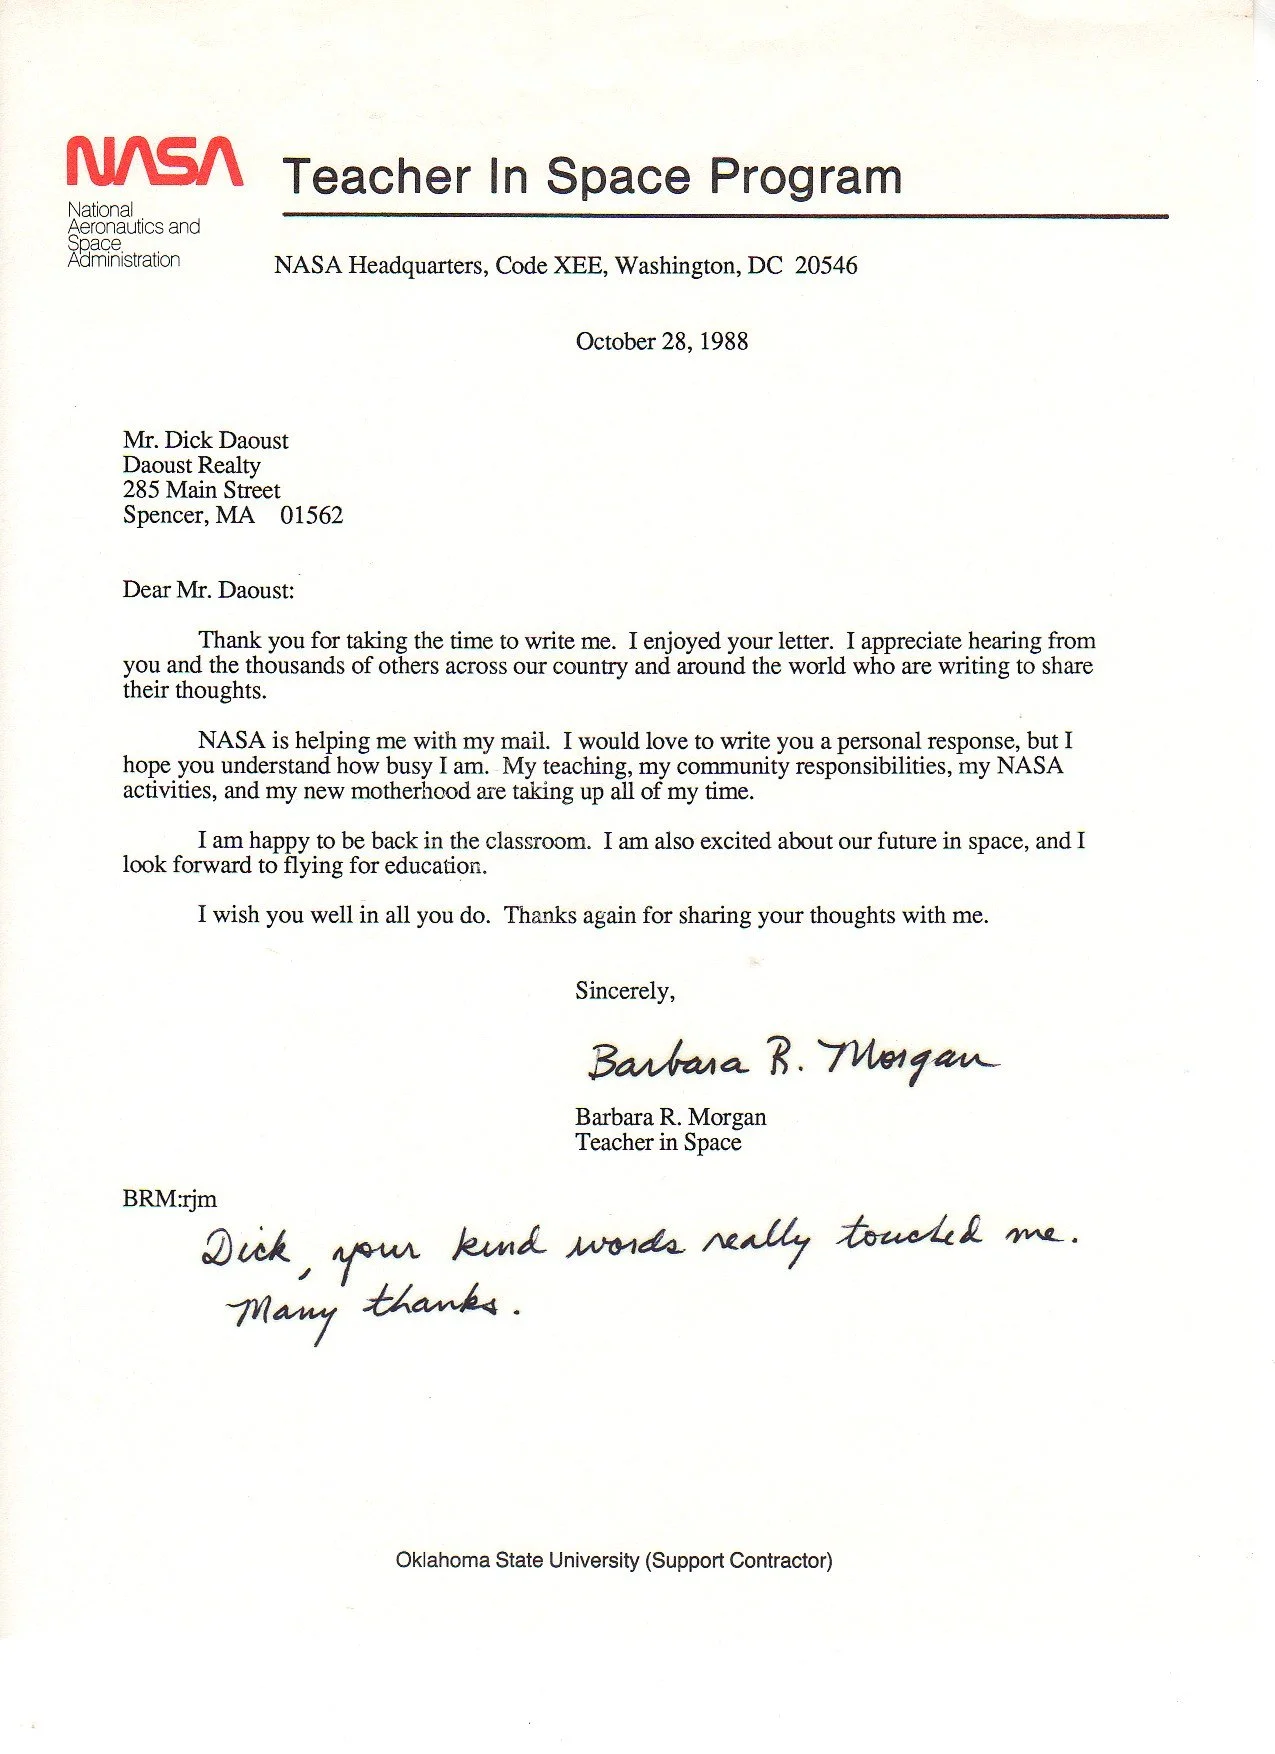 NASA
National
Aeronautics and
Space
Administration
Teacher In Space Program
NASA Headquarters, Code XEE, Washington, DC 20546
October 28, 1988
Mr. Dick Daoust
Daoust Realty
285 Main Street
Spencer, MA 01562
Dear Mr. Daoust:
Thank you for taking the time to write me. I enjoyed your letter. I appreciate hearing from
you and the thousands of others across our country and around the world who are writing to share
their thoughts.
NASA is helping me with my mail. I would love to write you a personal response, but I
hope you understand how busy I am. My teaching, my community responsibilities, my NASA
activities, and my new motherhood are taking up all of my time.
I am happy to be back in the classroom. I am also excited about our future in space, and I
look forward to flying for education.
I wish you well in all you do. Thanks again for sharing your thoughts with me.
Sincerely,
Barbara R. Morgan
Barbara R. Morgan
Teacher in Space
BRM:rjm
Dick, your kind words really touched me.
Many thanks.
Oklahoma State University (Support Contractor)